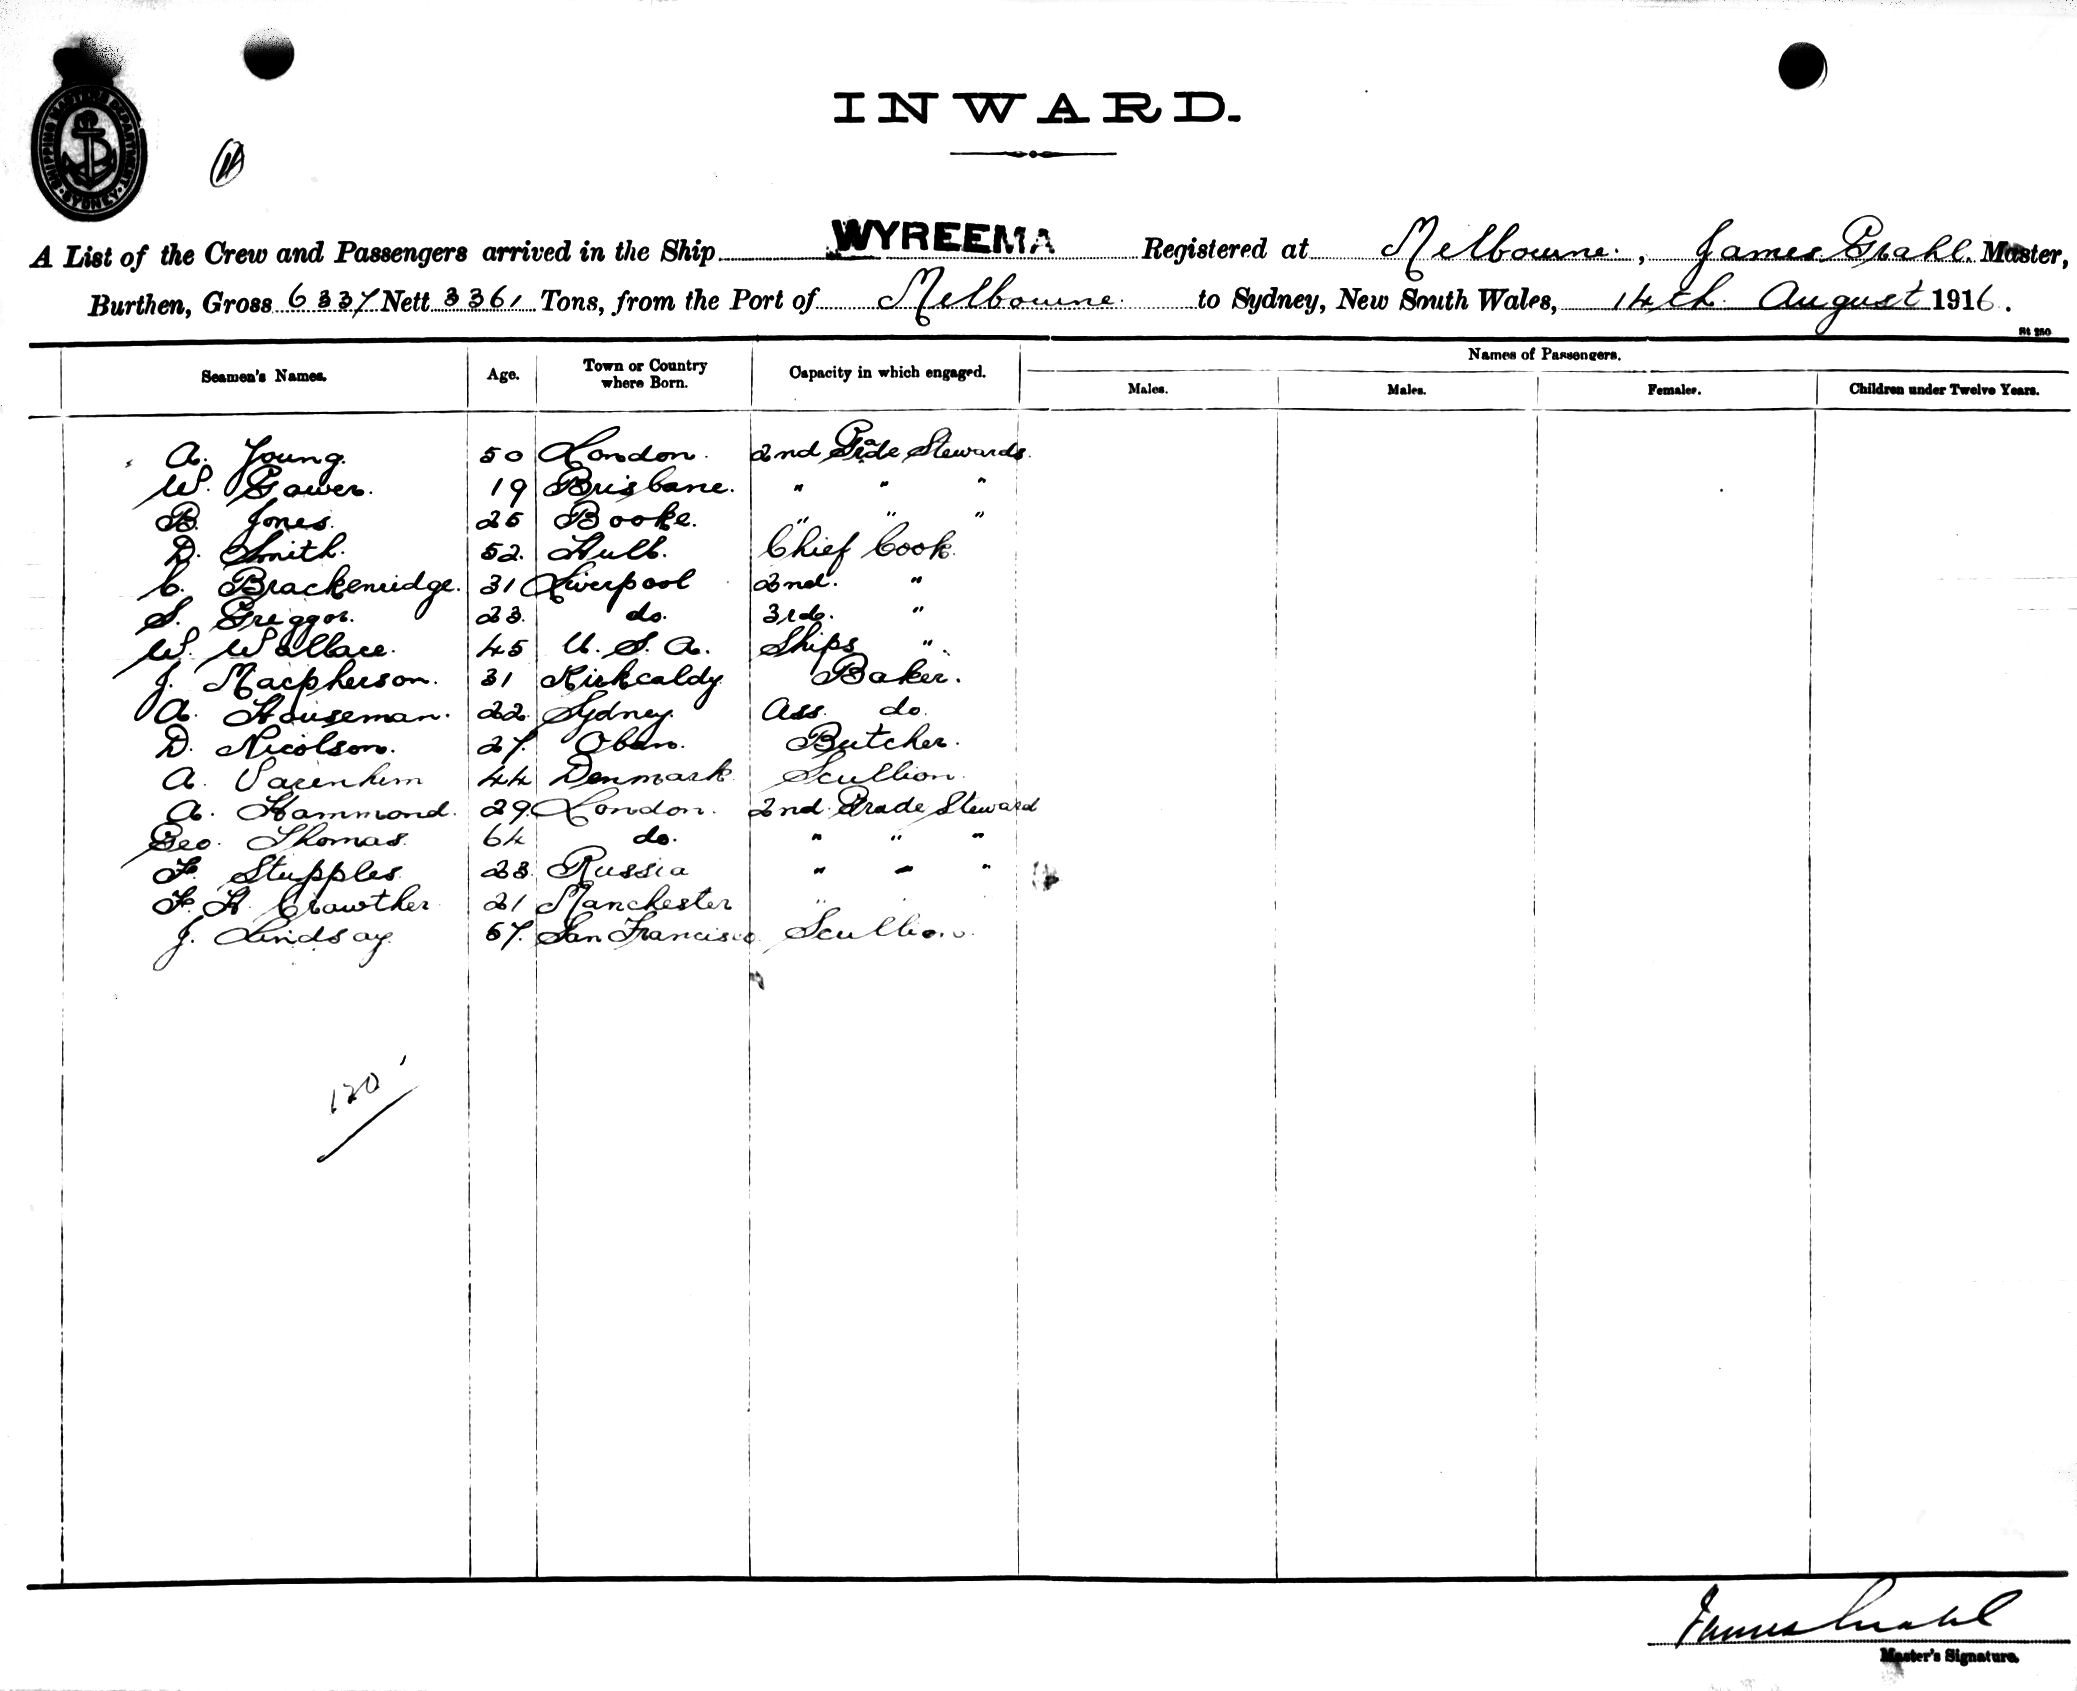 SHIPPING MASTERS DEPARTMENT
SYDNEY
INWARD.
A List of the Crew and Passengers arrived in the Ship WYREEMA Registered at Melbourne, James Grahl. Master,
Burthen, Gross 6337 Nett 3361 Tons, from the Port of Melbourne. to Sydney, New South Wales, 14th August 1916.
St 250
Seamen's Names. Age. Town or Country where Born. Capacity in which engaged. Names of Passengers.
Males. Males. Females. Children under Twelve Years.
A. Young. 50 London. 2nd Grade Stewards.
W. Gower. 19 Brisbane. " " "
B. Jones. 25 Booke. " " "
D. Smith. 52. Hull. Chief Cook.
C. Brackenridge. 31 Liverpool 2nd. "
S. Greggor. 23. do. 3rd. "
W. Wallace. 45 U. S. A. Ships "
J. Macpherson. 31 Kirkcaldy Baker.
A. Houseman. 22. Sydney. Ass. do.
D. Nicolson. 27. Oban. Butcher.
A. 44 Denmark Scullion.
A. Hammond. 29. London. 2nd Grade Steward
Geo. Thomas. 64 do. " " "
F. Stupples 23. Russia " " "
F. H. Crawther 21 Manchester "
J. Lindsay. 57. San Francisco Scullion.
120
James Grahl
Master's Signature.